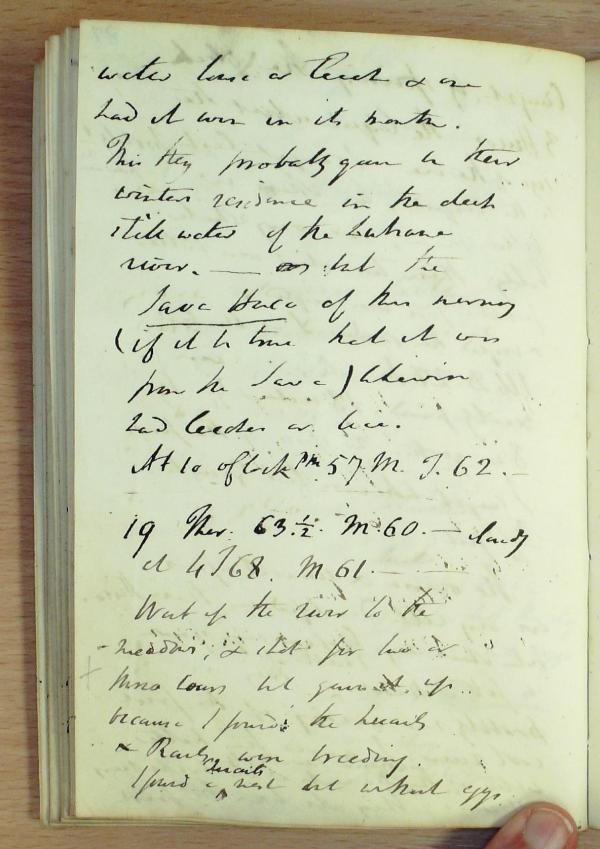 water louse or leech & one
had it even in its mouth.
This they probably gain in their
winters residence in the deep
still water of the
river. — but the
Sava Hucho of this morning
(if it be true that it was
from the Sava) likewise
had leeches or lice.
At 10 o'clock PM 57 M. T. 62. —
19 Ther. 63 ½ M. 60. — cloudy
at 4 T 68. M 61. —
Went up the river to the
meadows, & shot for two or
three hours but gave it up
because I found the snails
& Rails were breeding.
I found a snails nest but without eggs